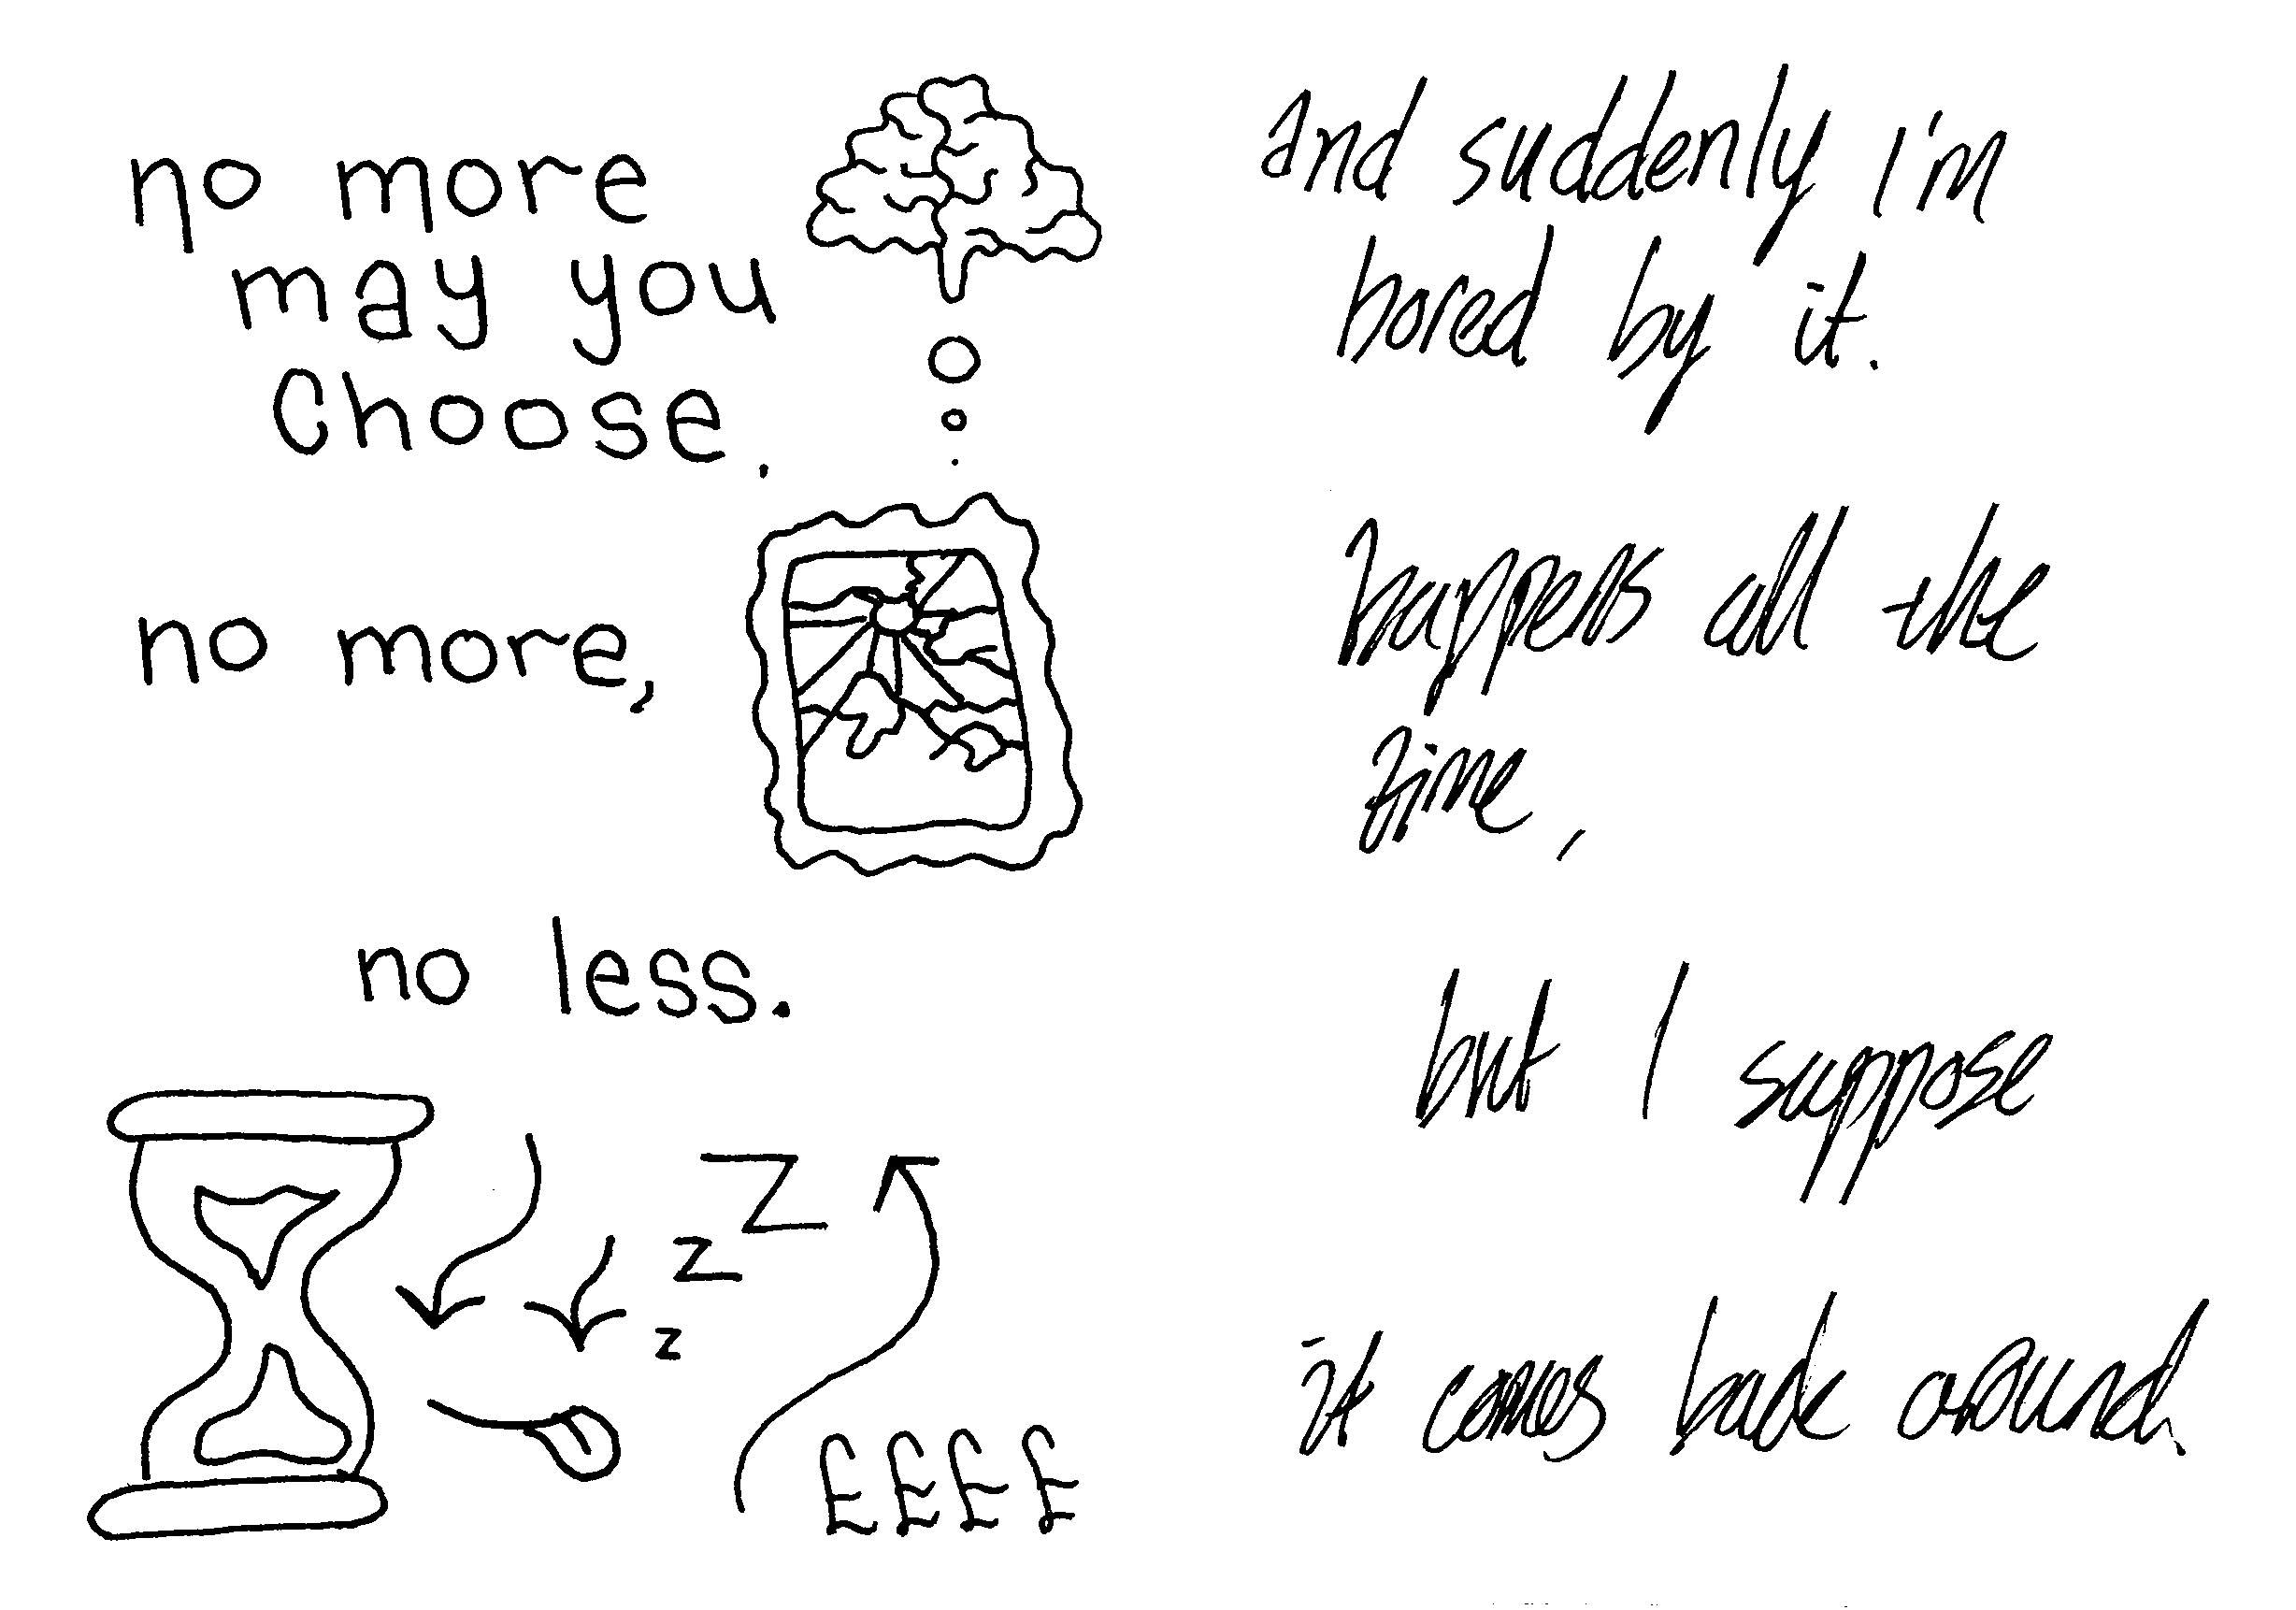 no more
may you
Choose.
no more,
no less.
z Z
z
££££
and suddenly i'm
bored by it.
happens all the
time,
but I suppose
it comes back around.